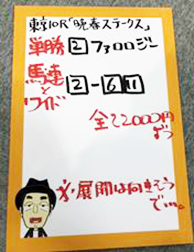 東京10R「晩春ステークス」
単勝 2 ファロロジー
馬連とワイド 2-6 11
全て2000円ずつ